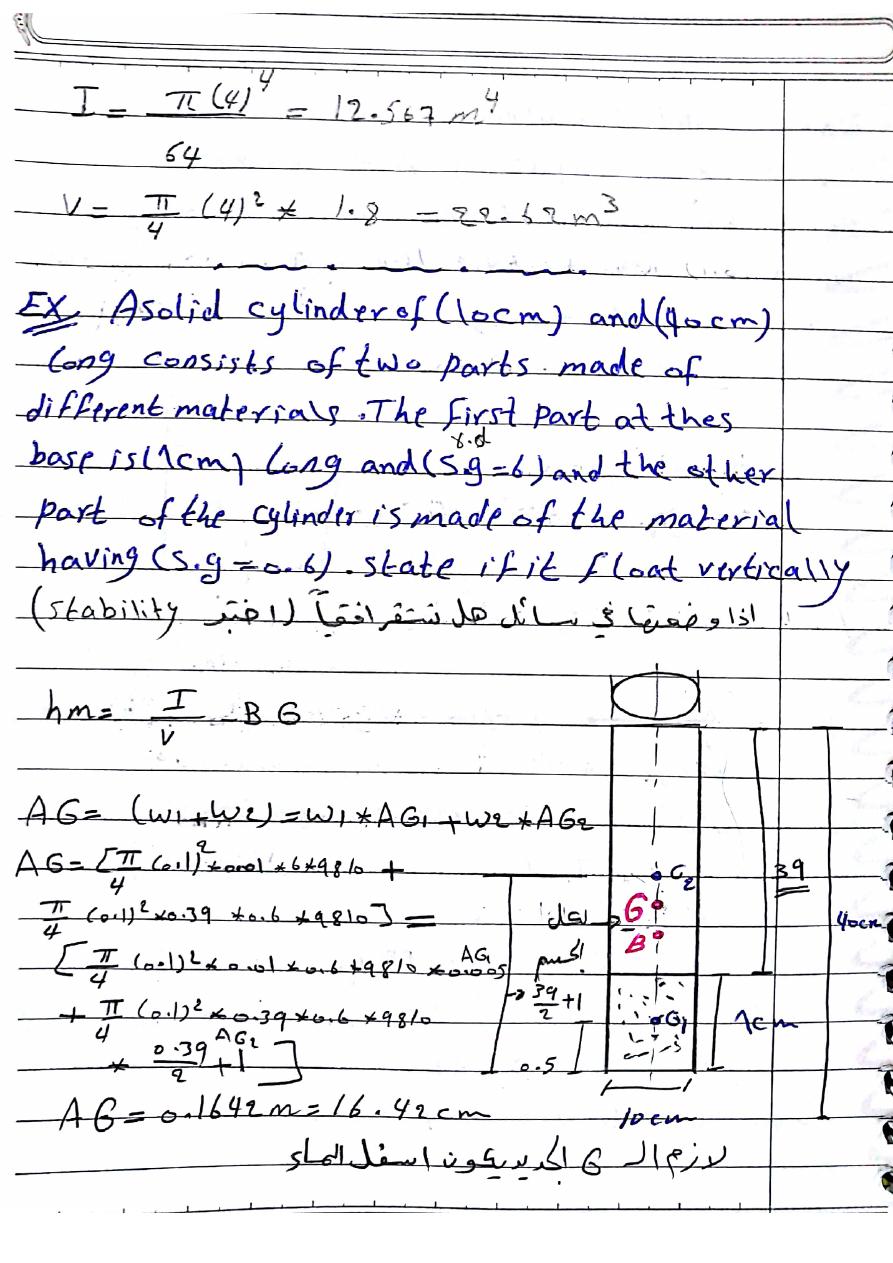 I = π(4)⁴ / 64 = 12.567 m⁴
V = π/4 (4)² * 1.8 = 22.62 m³
EX, A solid cylinder of (10cm) and (40cm)
long consists of two parts made of
different materials. The first part at thes
r.d
base is (1cm) long and (S.g=6) and the other
part of the cylinder is made of the material
having (S.g=0.6). state if it float vertically
اذا وضعتها في سائل هل تستقر افقياً (اختبر stability)
hm = I/V - BG
AG = (W1+W2) = W1*AG1 + W2*AG2
AG = [π/4 (0.1)² * 0.01 * 6 * 9810 +
π/4 (0.1)² * 0.39 * 0.6 * 9810] =
[π/4 (0.1)² * 0.01 * 0.6 * 9810 * 0.005 AG1
+ π/4 (0.1)² * 0.39 * 0.6 * 9810
* 0.39/2 + 1] AG2
AG = 0.1642m = 16.42 cm
لازم الـ G الجديد يكون اسفل الماء
G2
G
B
لكل
الجسم
39/2 + 1
G1
0.5
39
40cm
1cm
10cm